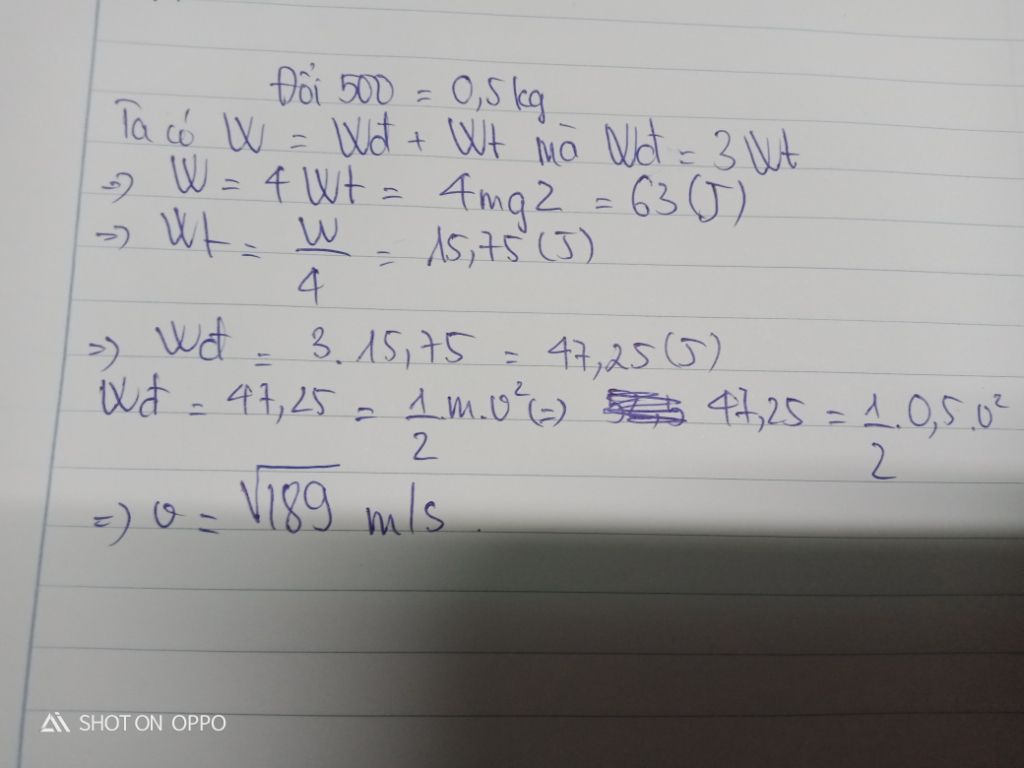 Đổi 500 = 0,5kg
Ta có W = Wđ + Wt mà Wđ = 3Wt
=> W = 4Wt = 4mgz = 63(J)
=> Wt = W/4 = 15,75(J)
=> Wđ = 3.15,75 = 47,25(J)
Wđ = 47,25 = 1/2 m.v² (=) 47,25 = 1/2.0,5.v²
=) v = √189 m/s.
SHOT ON OPPO